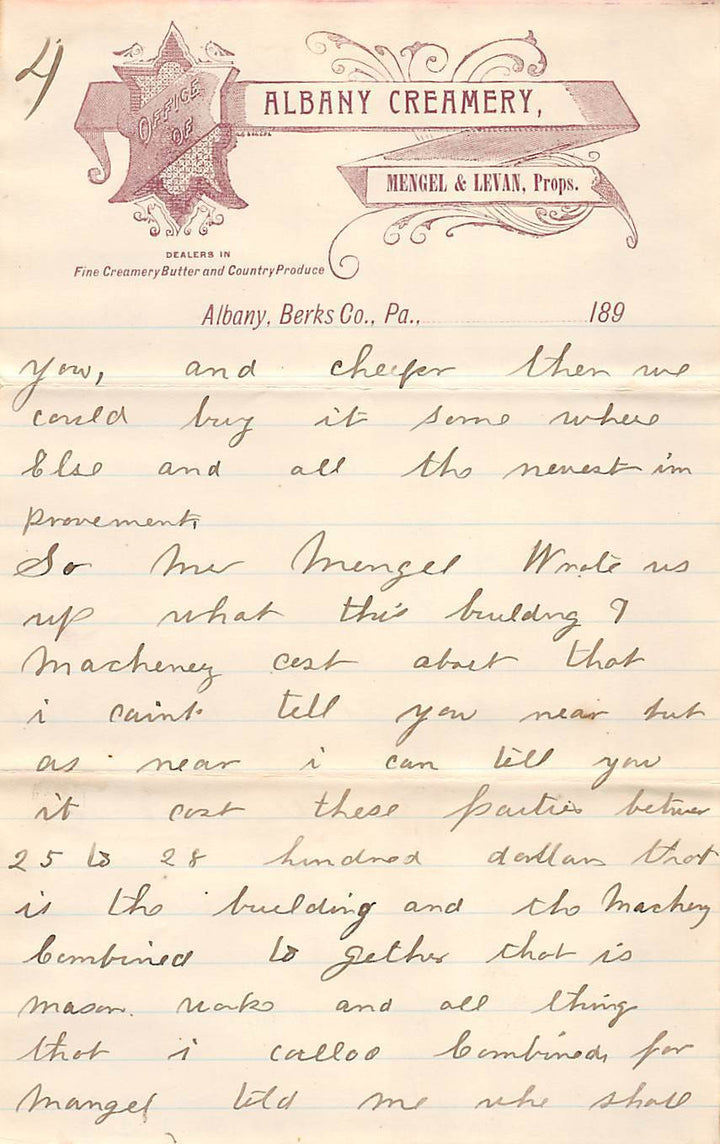 4
OFFICE
OF
ALBANY CREAMERY,
MENGEL & LEVAN, Props.
DEALERS IN
Fine Creamery Butter and Country Produce
Albany, Berks Co., Pa., 189
you, and cheeper then we
could buy it some where
Else and all the newest im
provement,
So Mr Mengel Wrote us
up what this building &
Macheney cost about that
i caint tell you near but
as near i can tell you
it cost these parties betwer
25 to 28 hundred dollars that
is the building and the Machery
Combined to gether that is
mason works and all thing
that i called Combined, for
Mangel told me who shall